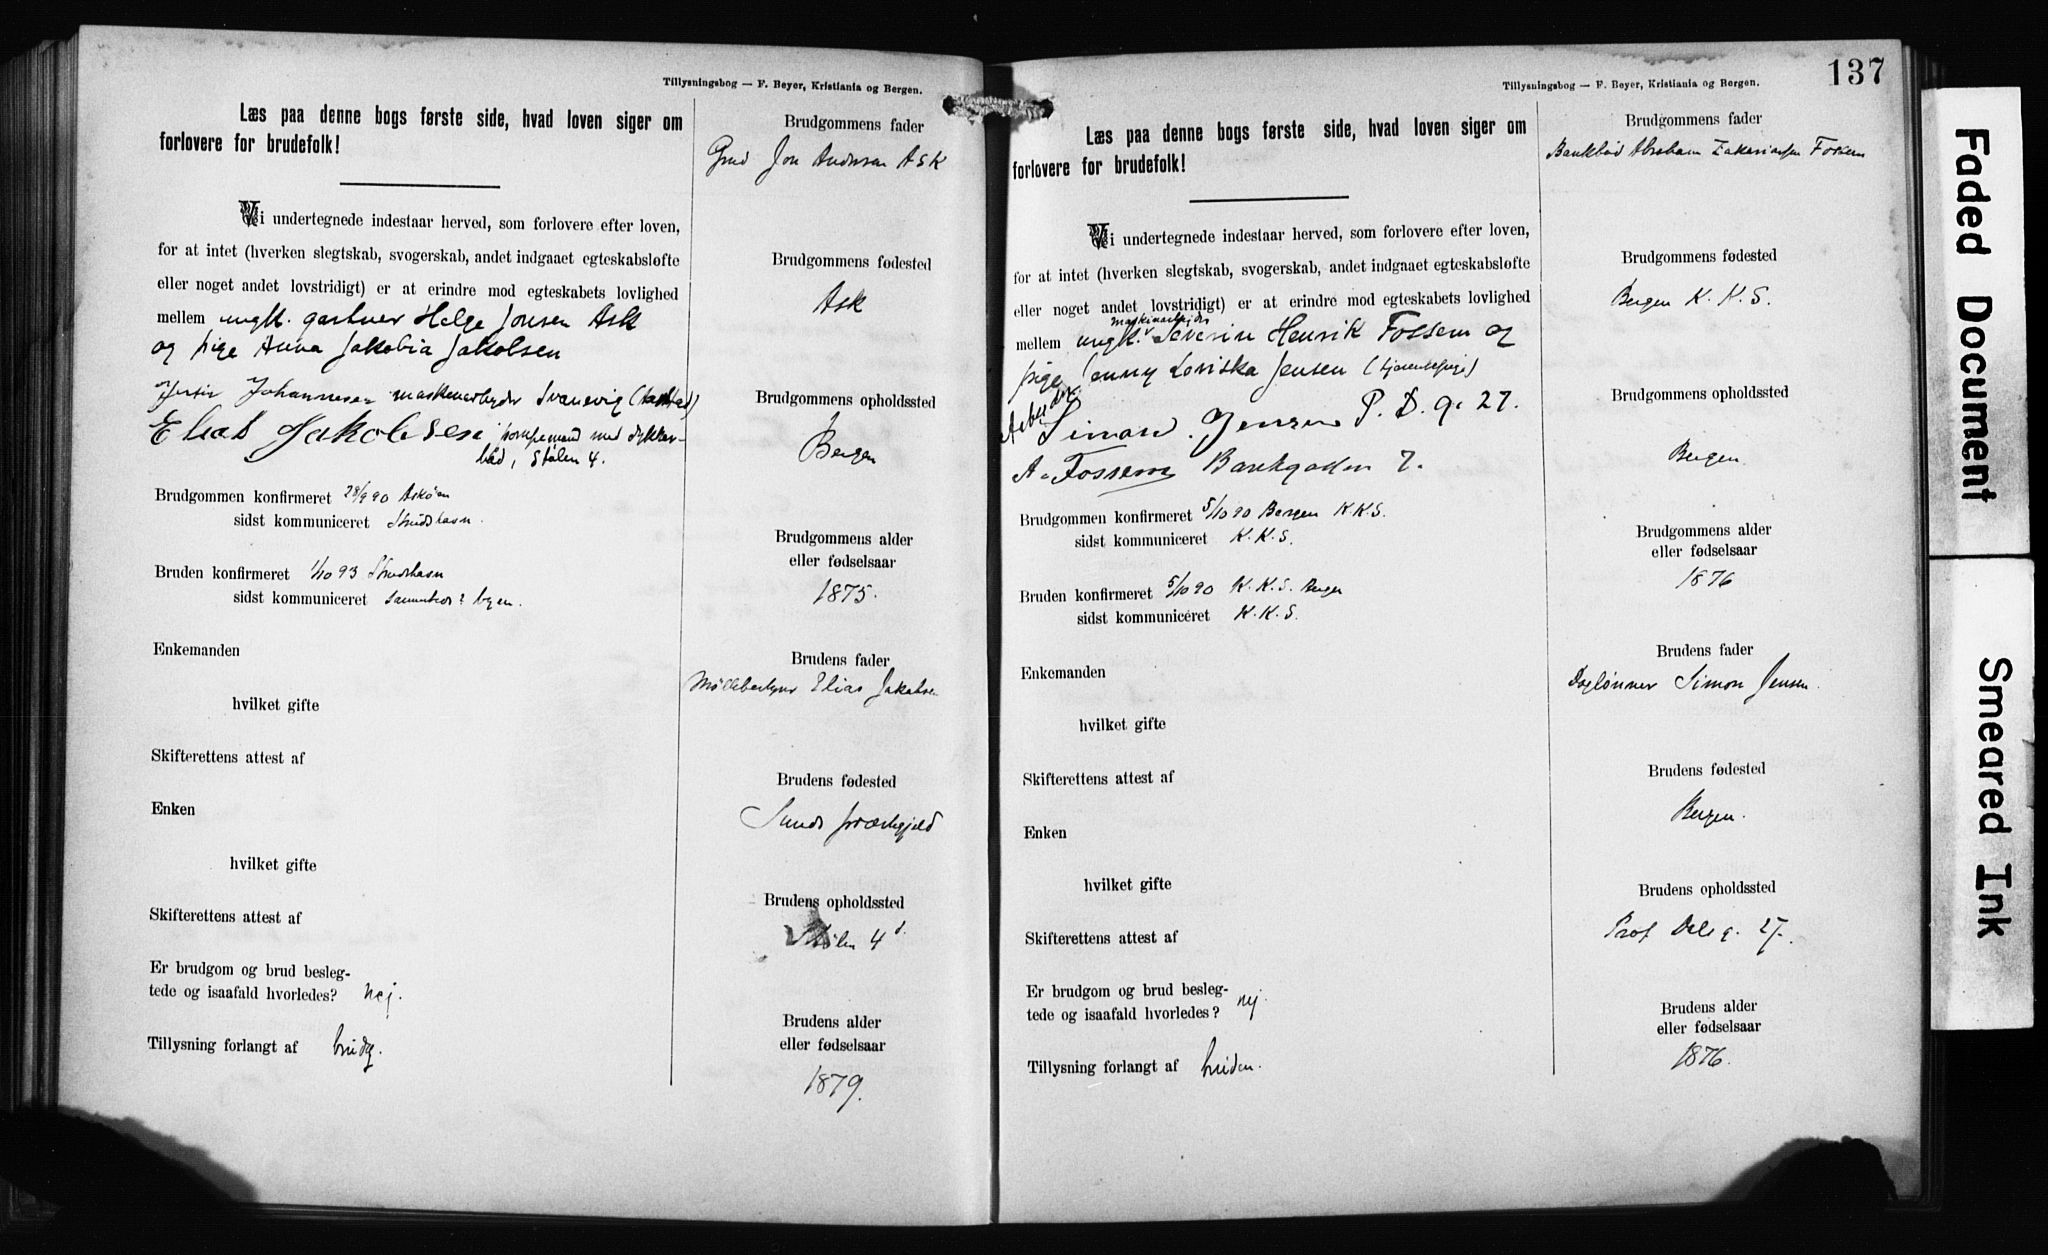 Tillysningsbog — F. Beyer, Kristiania og Bergen.
Læs paa denne bogs første side, hvad loven siger om
forlovere for brudefolk!
Vi undertegnede indestaar herved, som forlovere efter loven,
for at intet (hverken slegtskab, svogerskab, andet indgaaet egteskabsløfte
eller noget andet lovstridigt) er at erindre mod egteskabets lovlighed
mellem ungk. gartner Helge Jonsen Ask
og pige Anna Jakobia Jakobsen
Johannesen maskinarbeider Svanevig
Elias Jakobsen, pompemand med dykker-
båd, Stølen 4.
Brudgommen konfirmeret 28/9 90 Askøen
sidst kommuniceret Strudshavn.
Bruden konfirmeret 1/10 93 Strudshavn
sidst kommuniceret byen.
Enkemanden
hvilket gifte
Skifterettens attest af
Enken
hvilket gifte
Skifterettens attest af
Er brudgom og brud besleg-
tede og isaafald hvorledes? nej.
Tillysning forlangt af brudg.
Brudgommens fader
Grd Jon Andersen Ask
Brudgommens fødested
Ask
Brudgommens opholdssted
Bergen
Brudgommens alder
eller fødselsaar
1875.
Brudens fader
Møllebestyrer Elias Jakobsen
Brudens fødested
Sunds præstegjeld
Brudens opholdssted
Stølen 4
Brudens alder
eller fødselsaar
1879.
137
Tillysningsbog — F. Beyer, Kristiania og Bergen.
Læs paa denne bogs første side, hvad loven siger om
forlovere for brudefolk!
Vi undertegnede indestaar herved, som forlovere efter loven,
for at intet (hverken slegtskab, svogerskab, andet indgaaet egteskabsløfte
eller noget andet lovstridigt) er at erindre mod egteskabets lovlighed
maskinarbejder
mellem ungk. Severin Henrik Fossem og
pige Jenny Loviska Jensen (tjenestepige)
Arbeider
Simon Jensen P. D. g. 27.
A. Fossem Bankgaden 7.
Brudgommen konfirmeret 5/10 90 Bergen K.K.S.
sidst kommuniceret K.K.S.
Bruden konfirmeret 5/10 90 K.K.S. Bergen
sidst kommuniceret K.K.S.
Enkemanden
hvilket gifte
Skifterettens attest af
Enken
hvilket gifte
Skifterettens attest af
Er brudgom og brud besleg-
tede og isaafald hvorledes? nej.
Tillysning forlangt af bruden.
Brudgommens fader
Bankbud Abraham Zakariassen Fossem
Brudgommens fødested
Bergen K.K.S.
Brudgommens opholdssted
Bergen.
Brudgommens alder
eller fødselsaar
1876
Brudens fader
Daglønner Simon Jensen.
Brudens fødested
Bergen.
Brudens opholdssted
Prof Dals g. 27.
Brudens alder
eller fødselsaar
1876.
Faded Document
Smeared Ink